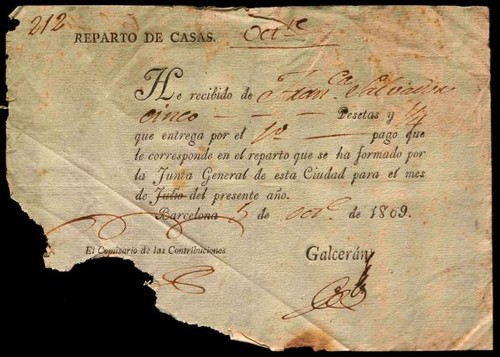 212
REPARTO DE CASAS. Oct.re
He recibido de Fran.ca Salvadora
cinco Pesetas y
que entrega por el 1º pago que
le corresponde en el reparto que se ha formado por
la Junta General de esta Ciudad para el mes
de Julio del presente año.
Barcelona 5 de oct.e de 1809.
El Comisario de las Contribuciones
Galcerán